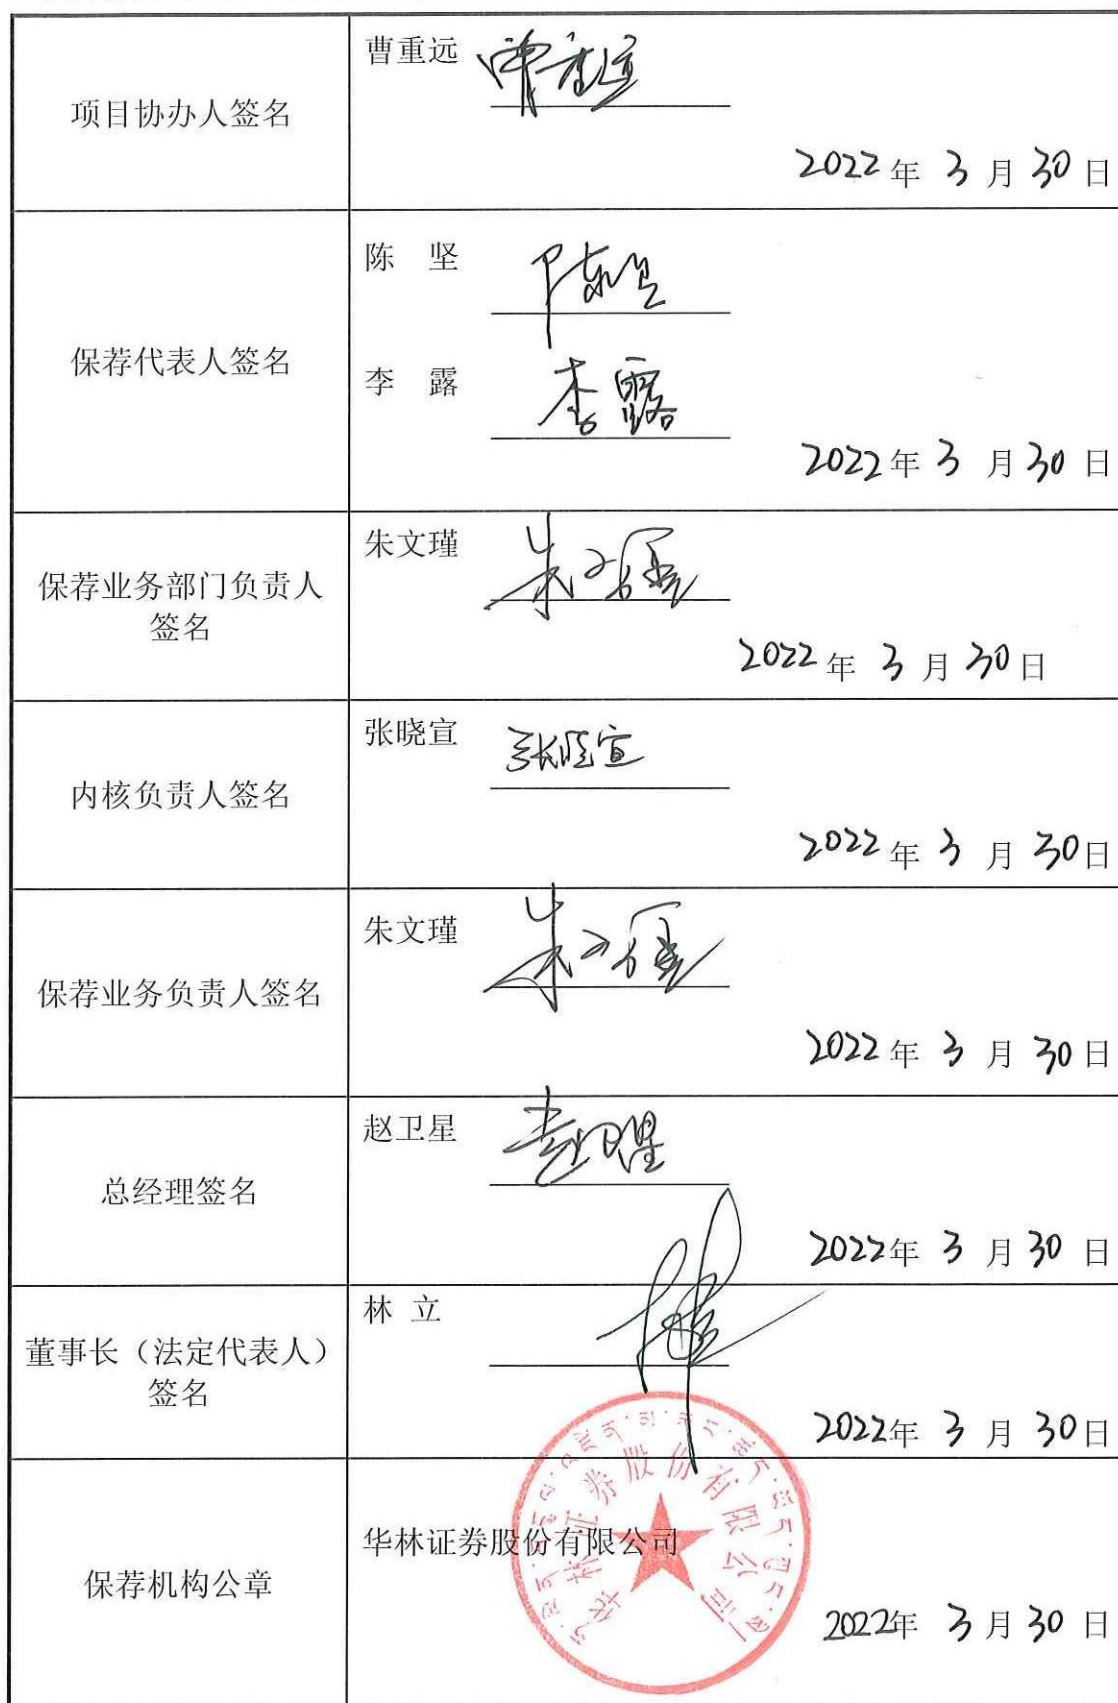 项目协办人签名
曹重远
曹重远
2022年 3 月 30 日
保荐代表人签名
陈 坚
陈坚
李 露
李露
2022年 3 月 30 日
保荐业务部门负责人
签名
朱文瑾
朱文瑾
2022年 3 月 30 日
内核负责人签名
张晓宣
张晓宣
2022年 3 月 30日
保荐业务负责人签名
朱文瑾
朱文瑾
2022年 3 月 30 日
总经理签名
赵卫星
赵卫星
2022年 3 月 30 日
董事长（法定代表人）
签名
林 立
2022年 3 月 30日
保荐机构公章
华林证券股份有限公司
华林证券股份有限公司
2022年 3 月 30 日